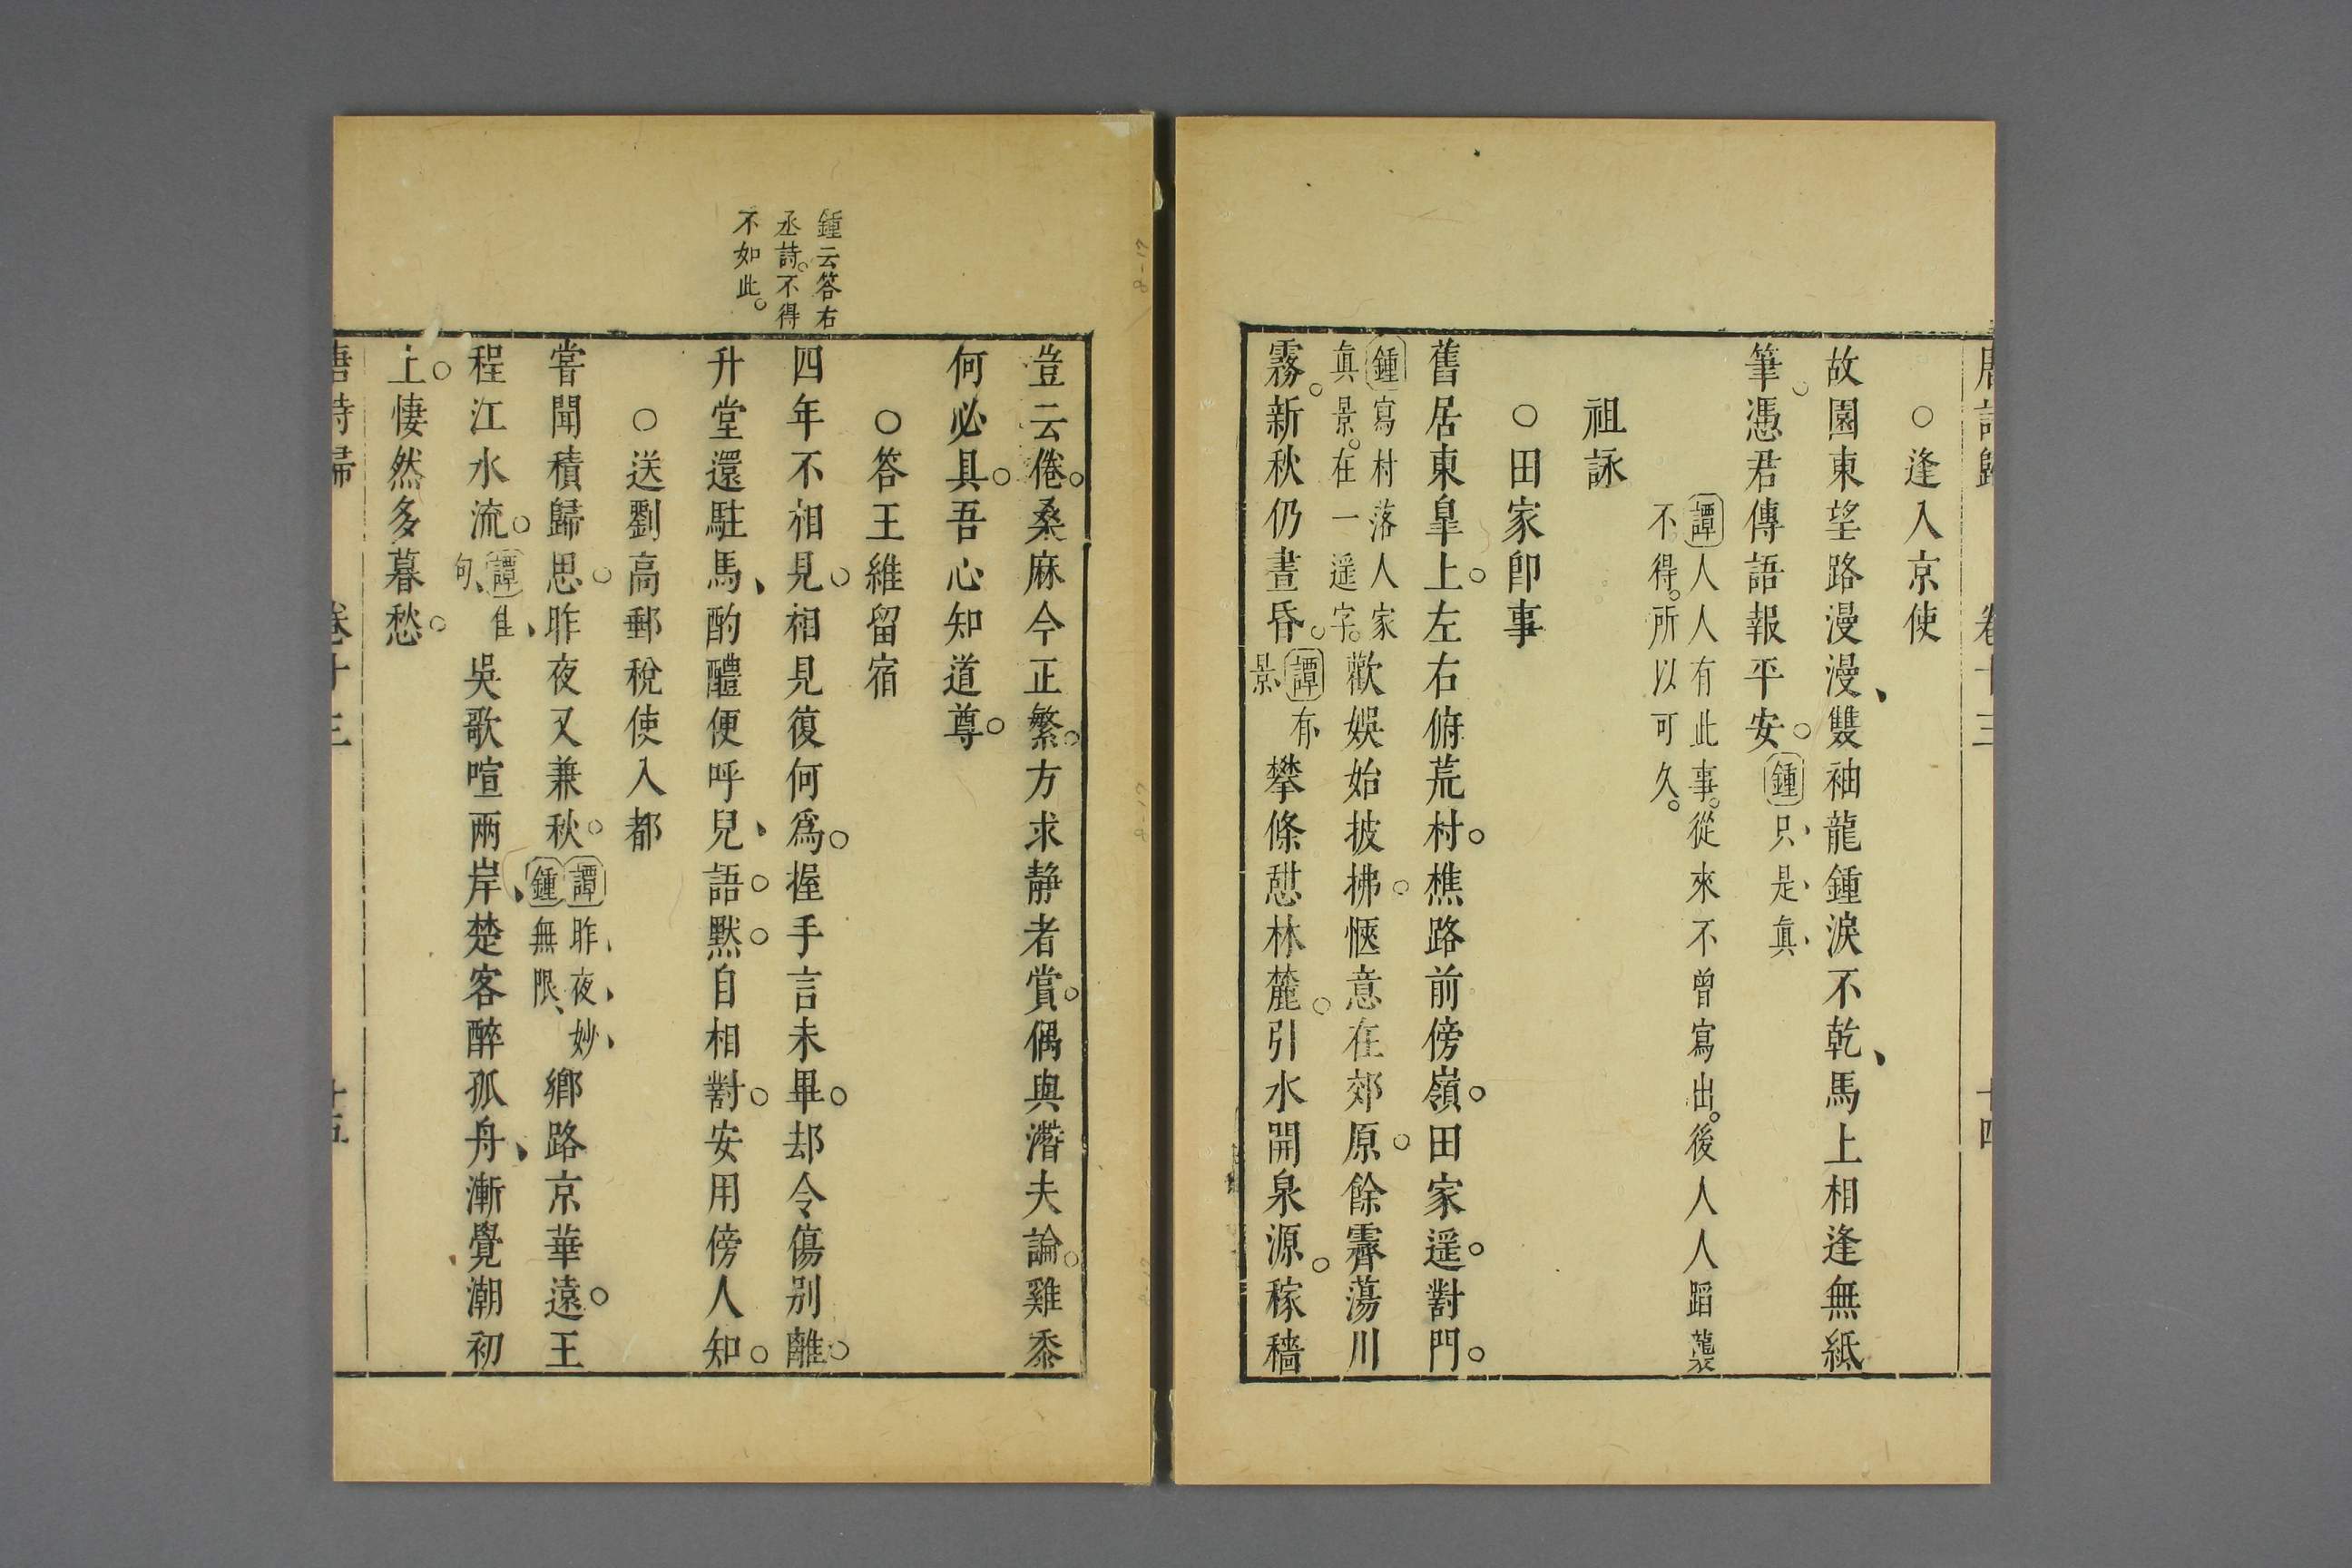 唐詩歸 卷十三 十四
○逢入京使
故園東望路漫漫、雙袖龍鍾淚不乾、馬上相逢無紙
筆。憑君傳語報平安。鍾只是眞
譚人人有此事。從來不曾寫出。後人人蹈襲
不得。所以可久。
祖詠
○田家卽事
舊居東皐上。左右俯荒村。樵路前傍嶺。田家遥對門。
鍾寫村落人家
眞景。在一遥字。
歡娛始披拂。愜意在郊原。餘霽蕩川
霧。新秋仍晝昏。譚有景
攀條憩林麓。引水開泉源。稼穡
豈云倦。桑麻今正繁。方求静者賞。偶與潛夫論。雞黍
何必具。吾心知道尊。
○答王維留宿
鍾云答右
丞詩。不得
不如此。
四年不相見。相見復何爲。握手言未畢。却令傷别離。
升堂還駐馬、酌醴便呼兒、語默自相對。安用傍人知。
○送劉高郵稅使入都
嘗聞積歸思。昨夜又兼秋。譚昨夜妙
鍾無限、
鄉路京華遠。王
程江水流。譚佳句、
吳歌喧兩岸、楚客醉孤舟、漸覺潮初
上。悽然多暮愁。
唐詩歸 卷十三 十五